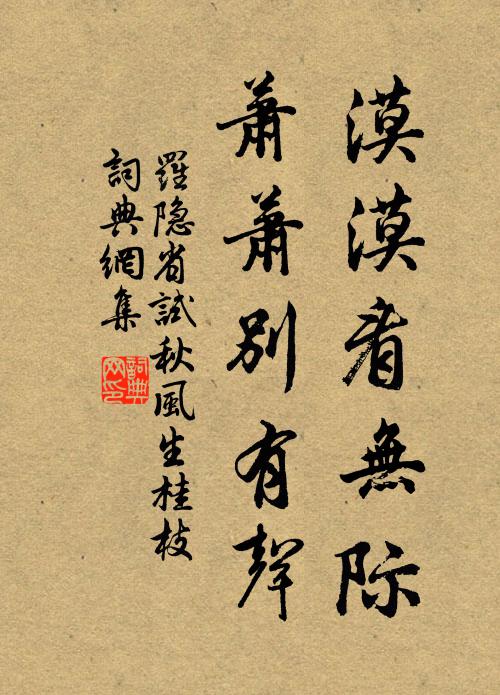 漠漠看無际
蕭蕭別有聲
羅隐省試秋風生桂枝
詞典網集
詞典网印